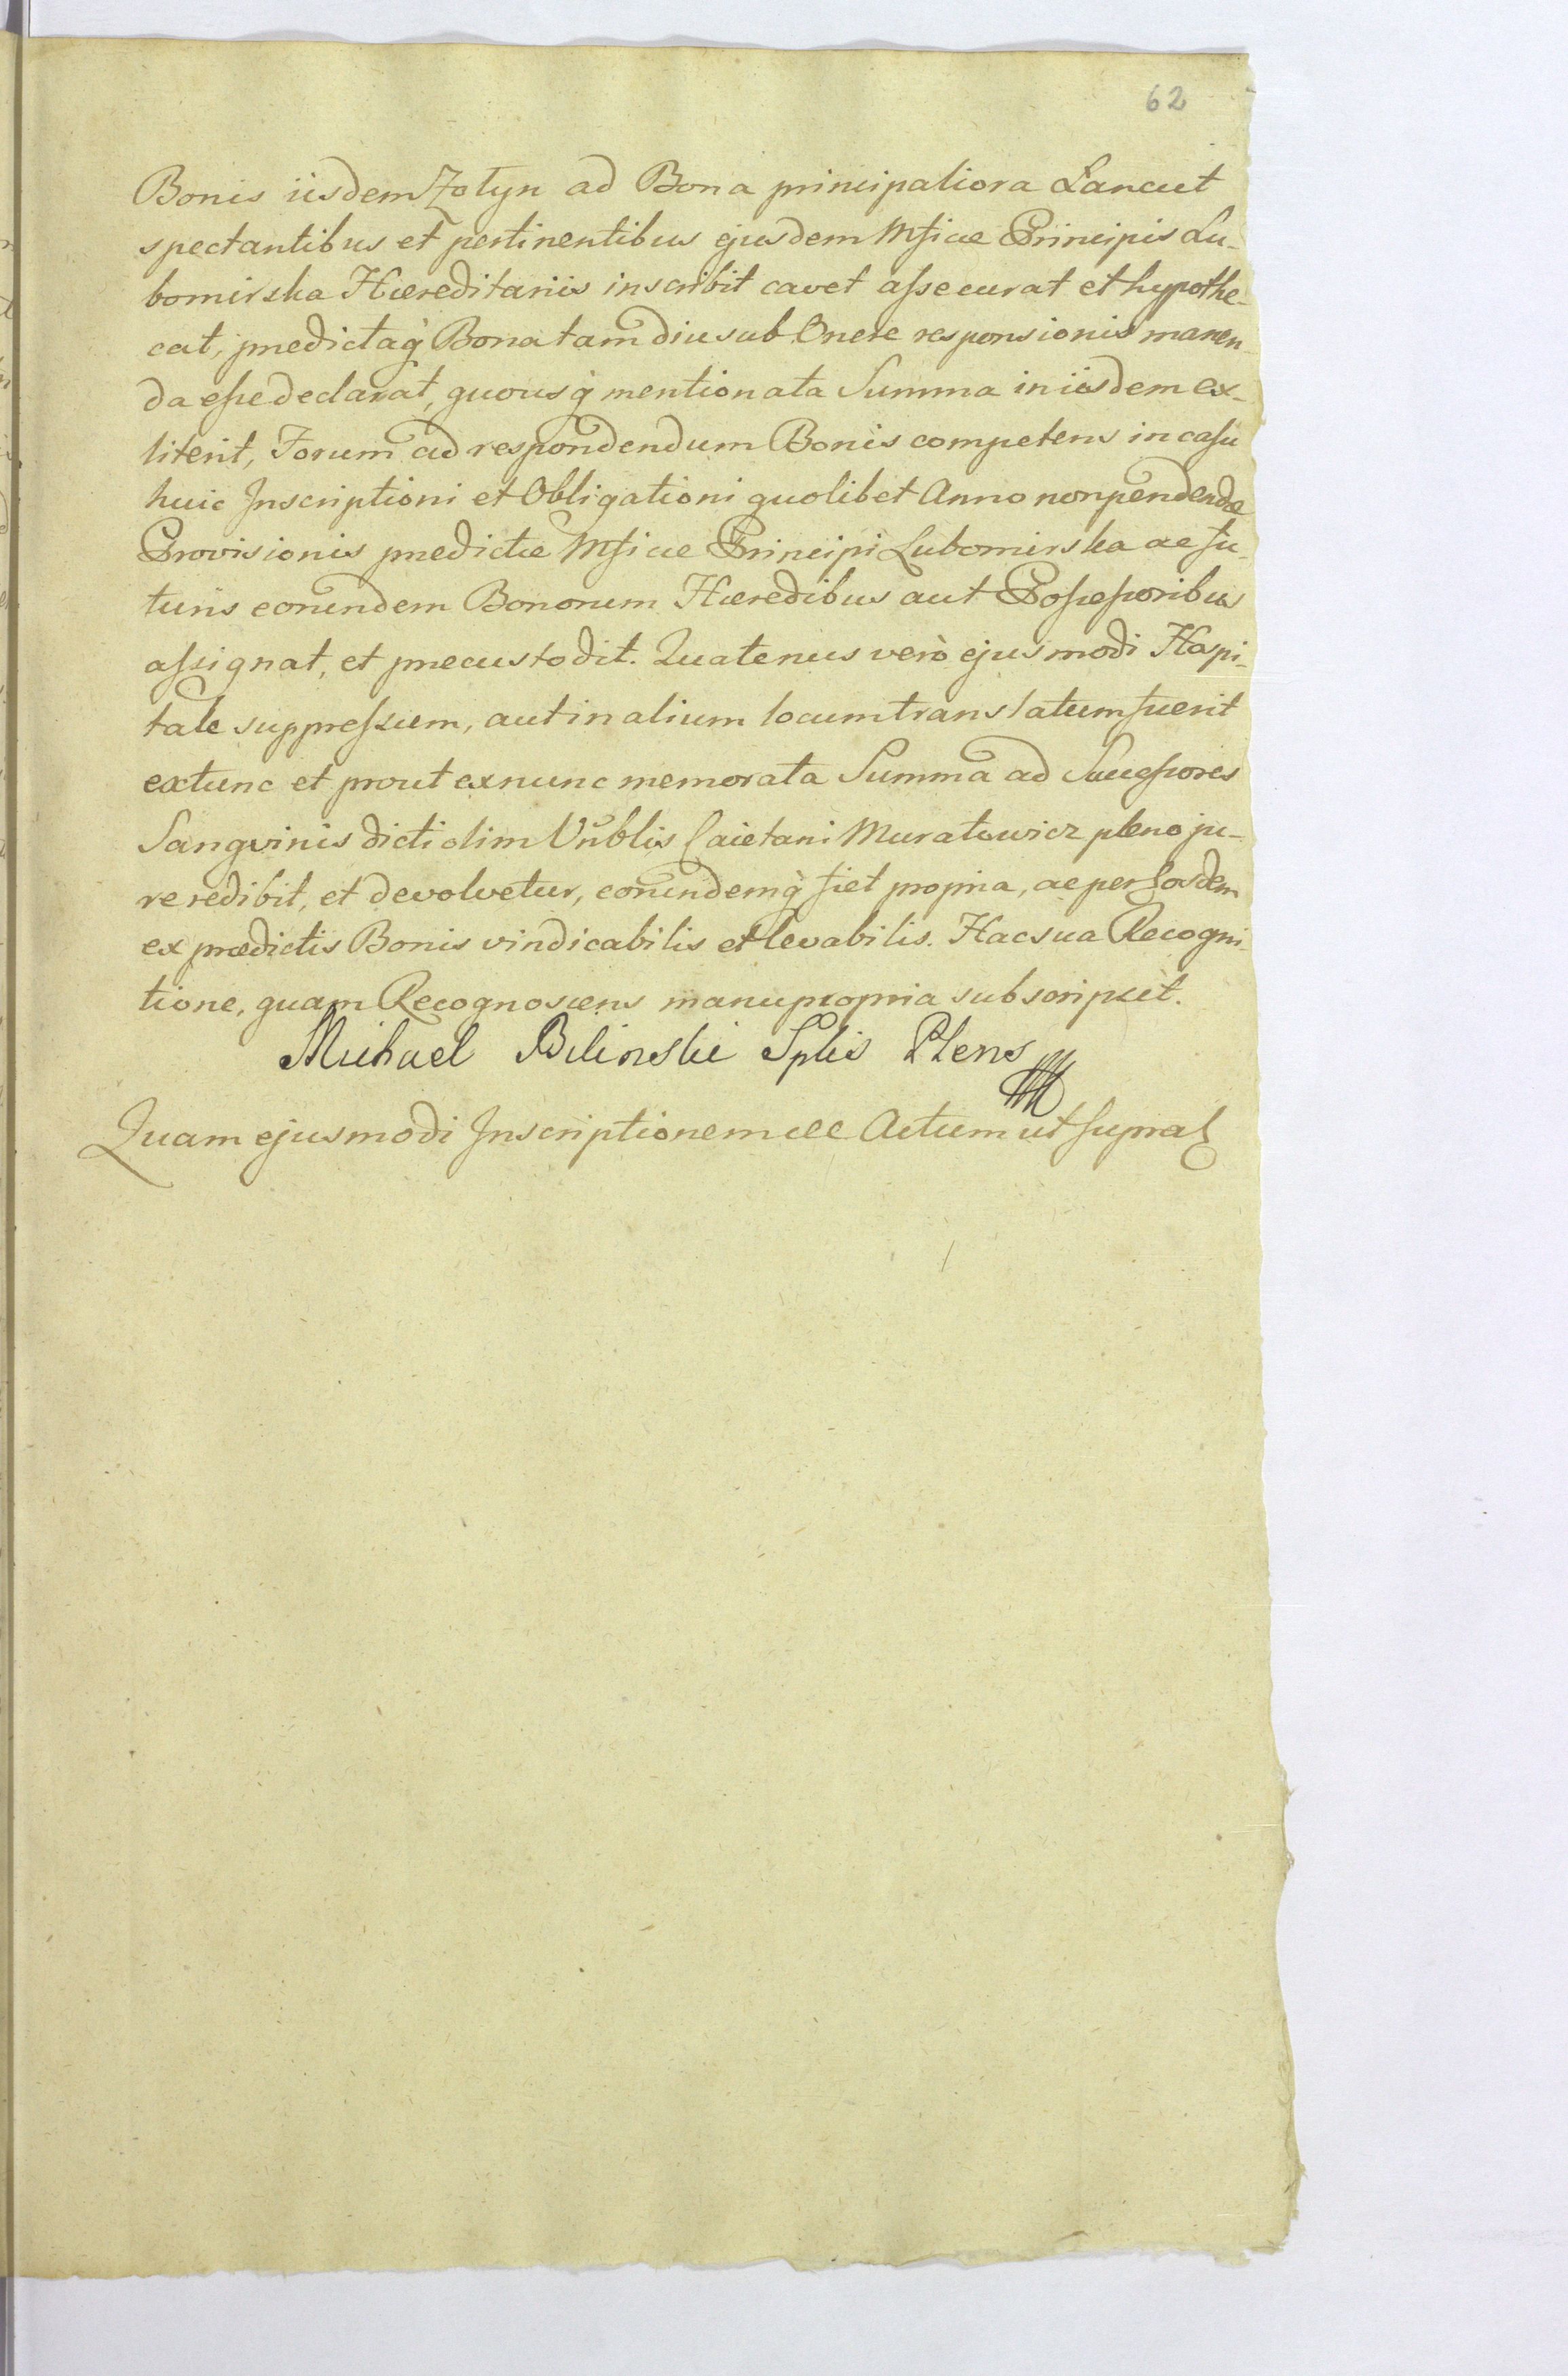 62
Bonis iisdem Zołyn ad Bona principaliora Lancut
spectantibus et pertinentibus ejusdem Mficae Principis Lu-
bomirska Haereditariis inscribit cavet assecurat et hypothe-
cat, praedictaq̀ Bona tamdiu sub Onere responsionis manen-
da esse declarat, quousq̀ mentionata Summa in iisdem ex-
titerit, Forum ad respondendum Bonis competens in casu
huic Inscriptioni et Obligationi quolibet Anno non pendendae
Provisionis praedictae Mficae Principi Lubomirska ac fu-
turis eorundem Bonorum Haeredibus aut Possessoribus
assignat, et praecustodit. Quatenus verò ejusmodi Hospi-
tale suppressum, aut in alium locum translatum fuerit
extunc et prout exnunc memorata Summa ad Successores
Sangvinis dicti olim Vnblis Caietani Muratowicz pleno ju-
re redibit, et devolvetur, eorundemq̀ fiet propria, ac per Eosdem
ex praedictis Bonis vindicabilis et levabilis. Hac sua Recogni-
tione, quam Recognoscens manu propria subscripsit.
Michael Bilinski Splis Plens
Quam ejusmodi Inscriptionem etc Actum ut supra